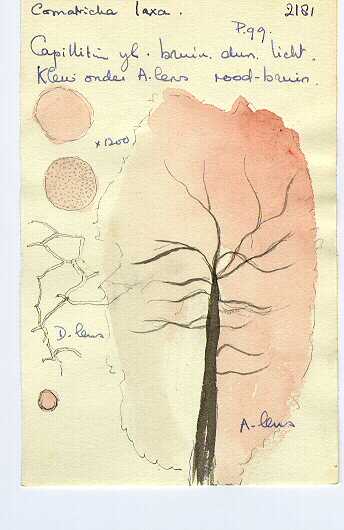 Comatricha laxa. 2181
P.99.
Capillitium gl. bruin. dun. licht.
Kleur onder A. lens rood-bruin.
x1200
D. lens
A. lens